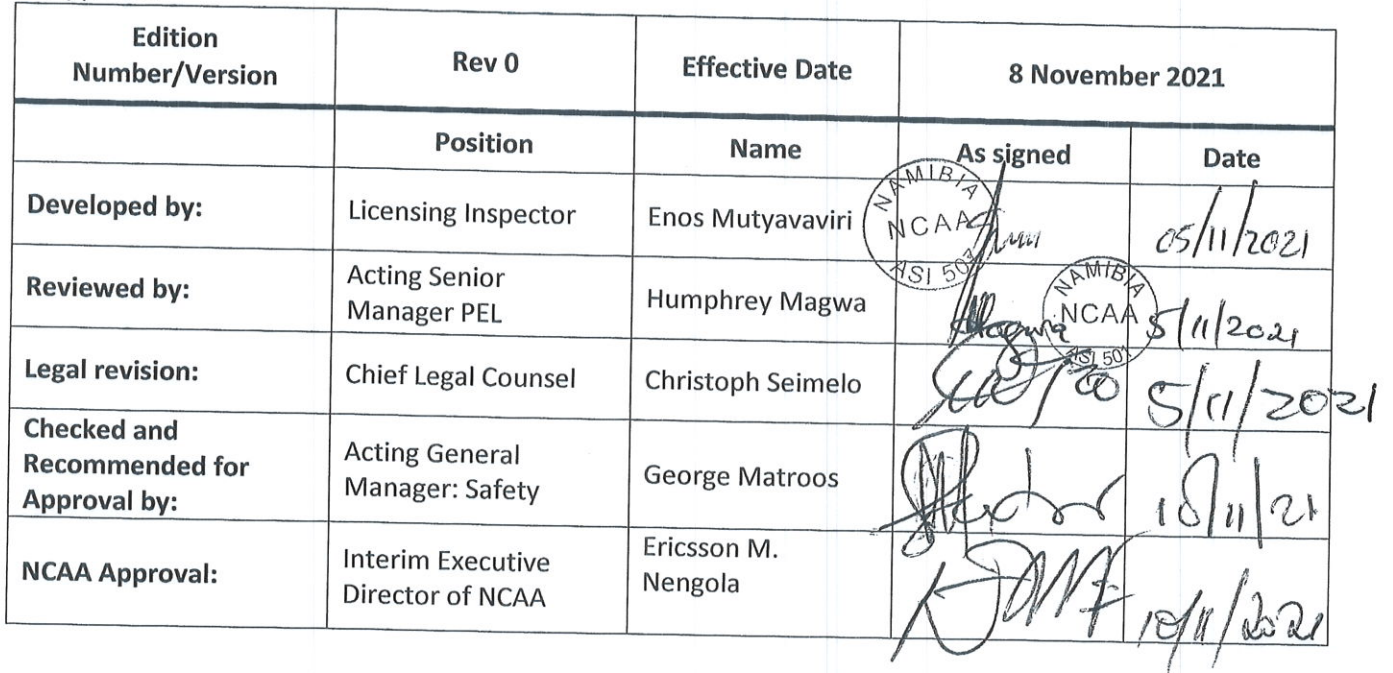 Edition
Number/Version
Rev 0
Effective Date
8 November 2021
Position
Name
As signed
Date
Developed by:
Licensing Inspector
Enos Mutyavaviri
NAMIBIA
NCAA
ASI 507
05/11/2021
Reviewed by:
Acting Senior
Manager PEL
Humphrey Magwa
NAMIBIA
NCAA
ASI 501
5/11/2021
Legal revision:
Chief Legal Counsel
Christoph Seimelo
5/11/2021
Checked and
Recommended for
Approval by:
Acting General
Manager: Safety
George Matroos
10/11/21
NCAA Approval:
Interim Executive
Director of NCAA
Ericsson M.
Nengola
10/11/2021